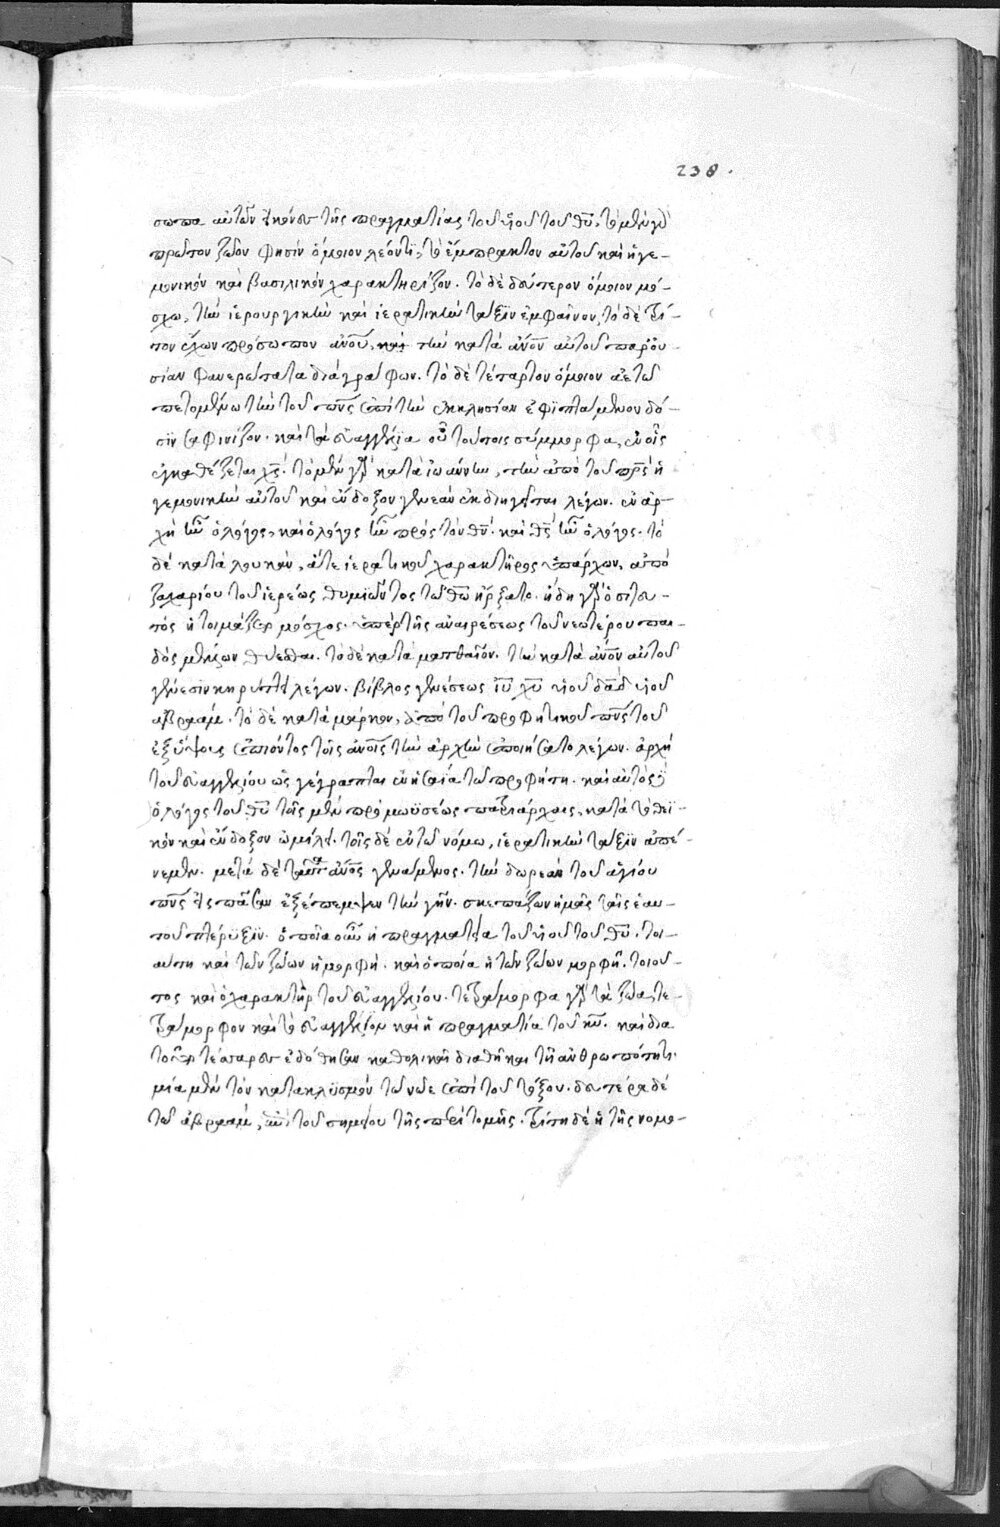 238.
σωπα αὐτῶν εἰκόνες τῆς πραγματείας τοῦ υἱοῦ τοῦ θῡ. τὸ μὲν γὰρ
πρῶτον ζῶον φησὶν ὅμοιον λέοντι, τὸ ἔμπρακτον αὐτοῦ καὶ ἡγε-
μονικὸν καὶ βασιλικὸν χαρακτηρίζον. τὸ δὲ δεύτερον ὅμοιον μό-
σχω, τὴν ἱερουργικὴν καὶ ἱερατικὴν τάξϊν ἐμφαῖνον, τὸ δὲ τρί-
τον ἔχων πρόσωπον ἀνοῦ, καὶ τὴν κατὰ ἄνον αὐτοῦ παρου-
σίαν φανερώτατα διαγράφων. τὸ δὲ τέταρτον ὅμοιον ἀετῶ
πετομένω τὴν τοῦ πνς ἐπὶ τὴν ἐκκλησίαν ἐφϊπταμένου δό-
σϊν σαφινίζον. καὶ τὰ εὐαγγέλϊα οὖν τούτοις σύμμορφα, ἐν οἷς
ἐγκαθέζεται χς. τὸ μὲν γὰρ κατὰ ἰωάννην, τὴν ἀπὸ τοῦ πρς ἡ
γεμονικὴν αὐτοῦ καὶ ἔνδοξον γενεὰν ἐκδιηγεῖται λέγων. ἐν ἀρ-
χῆ ἦν ὁ λόγος, καὶ ὁ λόγος ἦν πρὸς τὸν θν. καὶ θς ἦν ὁ λόγος. τὸ
δὲ κατὰ λουκᾶν, ἅτε ἱερατικοῦ χαρακτῆρος ὑπάρχων, ἀπὸ
ζαχαρίου τοῦ ἱερέως θυμιῶντος τῶ θῶ ἤρξατο. ἤδη γὰρ ὁ σιτευ-
τὸς ἡτοιμάζετο μόσχος. ὑπὲρ τῆς ἀναιρέσεως τοῦ νεωτέρου παι-
δὸς μέλλων θύεσθαι. τὸ δὲ κατὰ ματθαῖον. τὴν κατὰ ἄνον αὐτοῦ
γένεσιν κηρύττει λέγων. βίβλος γενέσεως ιυ χυ υἱοῦ δαδ υἱοῦ
ἀβραάμ. τὸ δὲ κατὰ μάρκον, ἀπὸ τοῦ προφητικοῦ πνς τοῦ
ἐξ ὕψους ἐπιόντος τοῖς ἀνοις τὴν ἀρχὴν ἐποιήσατο λέγων. ἀρχὴ
τοῦ εὐαγγελίου ὡς γέγραπται ἐν ἡσαΐα τῶ προφήτη. καὶ αὐτὸς δὲ
ὁ λόγος τοῦ θῡ τοῖς μὲν πρὸ μωϋσέως πατριάρχαις, κατὰ τὸ θεϊ-
κὸν καὶ ἔνδοξον ὡμίλει. τοῖς δὲ ἐν τῶ νόμω, ἱερατικὴν τάξϊν ἀπέ-
νεμεν. μετὰ δὲ ταῦτα ἄνος γενάμενος. τὴν δωρεὰν τοῦ ἁγίου
πνς εἰς πᾶσαν ἐξέπεμψεν τὴν γῆν. σκεπάζων ἡμᾶς ταῖς ἑαυ-
τοῦ πτέρυξϊν. ὁποία οὖν ἡ πραγματεία τοῦ υἱοῦ τοῦ θῡ. τοι-
αύτη καὶ τῶν ζώων ἡ μορφή. καὶ ὁποία ἡ τῶν ζώων μορφή. τοιοῦ-
τος καὶ ὁ χαρακτὴρ τοῦ εὐαγγελίου. τετράμορφα γὰρ τὰ ζῶα, τε-
τράμορφον καὶ τὸ εὐαγγέλιον καὶ ἡ πραγματεία τοῦ κυ. καὶ διὰ
τοῦτο τέσσαρες ἐδόθησαν καθολικαὶ διαθῆκαι τῆ ἀνθρωπότητι.
μία μὲν τὸν κατακλϋσμὸν τῶ νῶε ἐπὶ τοῦ τόξου. δευτέρα δὲ
τῶ ἀβραάμ, ἐπὶ τοῦ σημείου τῆς περιτομῆς. τρίτη δὲ ἡ τῆς νομο-